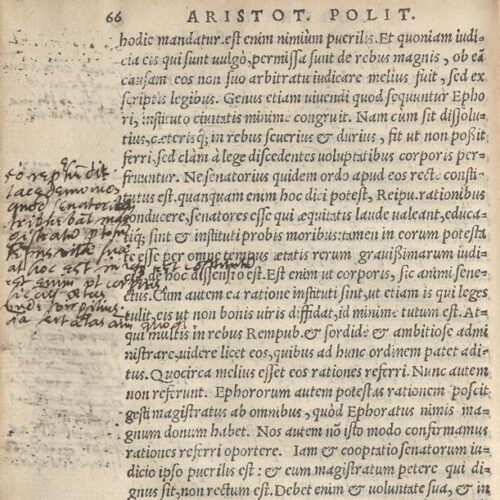 66 ARISTOT. POLIT.
hodie mandatur. est enim nimium puerilis. Et quoniam iudi-
cia eis qui sunt uulgò, permissa sunt de rebus magnis, ob eã
causam eos non suo arbitratu iudicare melius fuit, sed ex
scriptis legibus. Genus etiam uiuendi quod sequuntur Epho
ri, instituto ciuitatis minime congruit. Nam cum sit dissolu-
tius, cæterisq; in rebus seuerius & durius, fit ut non possit
ferri, sed clàm à lege discedentes uoluptatibus corporis per-
fruantur. Ne senatorius quidem ordo apud eos recte consti-
tutus est. quanquam enim hoc dici potest, Reipu. rationibus
conducere, senatores esse qui æquitatis laude ualeant, educa
tiq; sint & instituti probis moribus: tamen in eorum potesta
te esse per omne tempus ætatis rerum grauissimarum iudi-
cia, de hoc dissensio est. Est enim ut corporis, sic animi sene-
ctus. Cum autem ea ratione instituti sint, ut etiam is qui leges
tulit, eis ut non bonis uiris diffidat, id minime tutum est. At-
qui multis in rebus Rempub. & sordide & ambitiose admi
nistrare, uidere licet eos, quibus ad hunc ordinem patet adi-
tus. Quocirca melius esset eos rationes referri. Nunc autem
non referunt. Ephororum autem potestas rationem poscit
gesti magistratus ab omnibus, quòd Ephoratus nimis ma-
gnum donum habet. Nos autem nõ isto modo confirmamus
rationes referri oportere. Iam & cooptatio senatorum iu-
dicio ipso puerilis est: & eum magistratum petere qui di-
gnus sit, non rectum est. Debet enim & uoluntate sua, & in
lacedemonios
quod senatorib
est enim ut corporis
sic animi